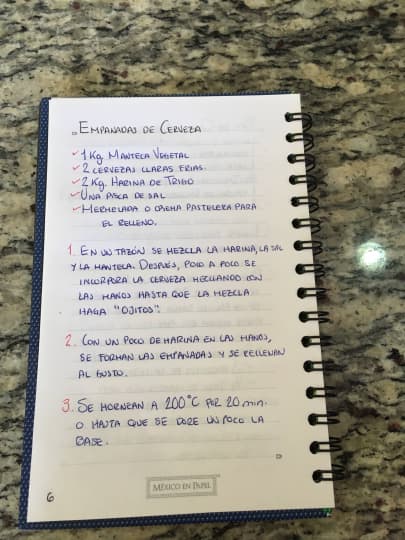 EMPANADAS DE CERVEZA
1 Kg. MANTECA VEGETAL
2 CERVEZAS CLARAS FRIAS.
2 Kg. HARINA DE TRIGO
UNA PIZCA DE SAL
MERMELADA O CREMA PASTELERA PARA
EL RELLENO.
1. EN UN TAZÓN SE MEZCLA LA HARINA, LA SAL
Y LA MANTECA. DESPUÉS, POCO A POCO SE
INCORPORA LA CERVEZA MEZCLANDO CON
LAS MANOS HASTA QUE LA MEZCLA
HAGA "OJITOS".
2. CON UN POCO DE HARINA EN LAS MANOS,
SE FORMAN LAS EMPANADAS Y SE RELLENAN
AL GUSTO.
3. SE HORNEAN A 200°C POR 20 min.
O HASTA QUE SE DORE UN POCO LA
BASE.
MÉXICO EN PAPEL
6